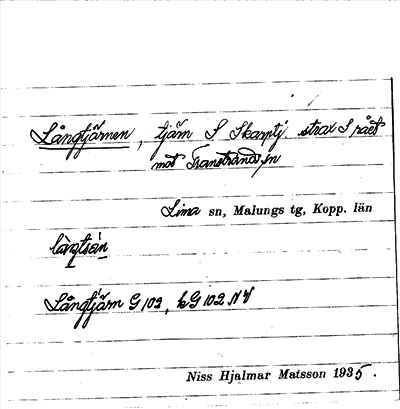 Långtjärnen, tjärn S Skarptj. strax S rået
mot Transtrands sn
Lima sn, Malungs tg, Kopp. län
Långtjärn G 102, bG 102 NV
Niss Hjalmar Matsson 1935.